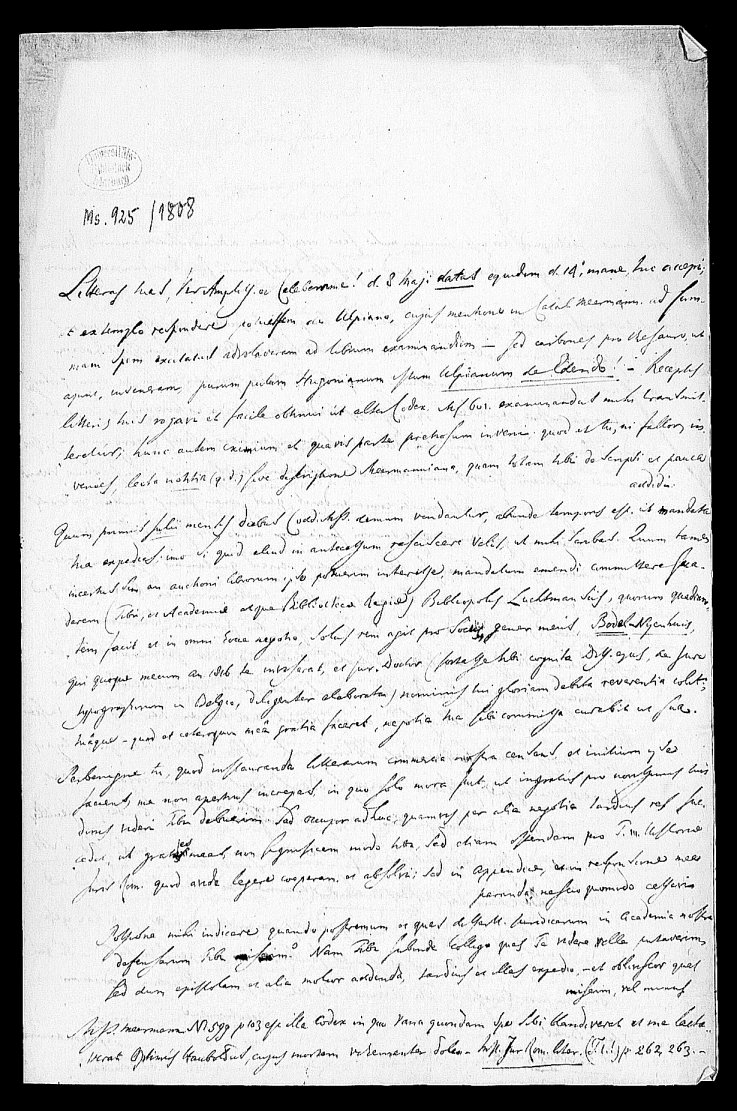 Ms. 925 /1808
Litteras tuas, Vir Ampliss. ac Celeberrime! d. 8 Maji datas equidem d. 14. mane, huc accepi;
et extemplo respondere potuissem de Ulpiano, cujus mentione in Catal. Meermann. ad sum-
mam spem excitatus advolaveram ad librum examinandum — sed carbones pro thesauro, ut
ajunt, inveneram, purum putum Hugonianum istum Ulpianum de Edendo! — Receptis
litteris tuis rogavi et facile obtinui ut alter Codex Ms 601. examinandus mihi transmit-
teretur; hunc autem eximium et quavis parte pretiosum inveni quod et tu, ni fallor, in-
venies, lecta notitia (q. d.) sive descriptione Meermanniana, quam totam tibi descripsi et pauca
addidi.
Quum primis Julii mensis diebus Codd. Mss. demum vendantur, abunde temporis est, ut mandata
tua expedies; imo si quid aliud in antecessum resciscere velis, ut mihi scribas. Quum tamen
incertus sim an auctioni librorum ipse potuerim interesse, mandatum emendi committere sua-
derem (Tibi, et Academiae atque Bibliothecae Regiae) Bibliopolis Luchtmansiis, quorum
fecit et in omni negotio, solus rem agit pro Sociis gener meus, Bodel-Nyenhuis,
qui quoque mecum an 1816 te inviserat, et Jur. Doctor (fortasse tibi cognita Diss. ejus, de Jure
typographorum in Belgio, diligenter elaborata) nominis tui gloriam debita reverentia colit;
tuâque - quod et ceteroquin meâ gratia faceret, negotia tua sibi commissa curabit ut sua.
Perbenigne tu, quod instauranda litterarum commercia nostra censens, et initium ipse
faciens, me non apertius increpas, in quo solo mora fuit, ut ingratus pro novissimis tuis
donis videri Tibi debuerim. Sed occupor adhuc, quamvis per alia negotia tardius res suc-
cedit, ut gratias meas, non significem modo tibi, sed etiam ostendam pro T. m. Historiae
Juris Rom. quod avide legere coeperam, et absolvi; sed in appendice, et in refutatione mea
nescio quomodo cessavi.
mihi indicare quando postremum et quas dissertt. juridicarum in Academia nostra
defensarum tibi miserim? Nam Tibi subinde collego quas Te videre velle putaverim
sed dum epistolam et alia molior addenda, tardius et illas expedio, - et obliviscor quas
miserim, vel minus
Mss. Meermann. No 599 p 103 est ille Codex in quo vana quondam spe sibi blandiverat et me lacta-
verat Optimus Hauboldus, cujus mortem vehementer doleo - Hist. Jur. Rom. liter. (T. 1.) p 262, 263. -